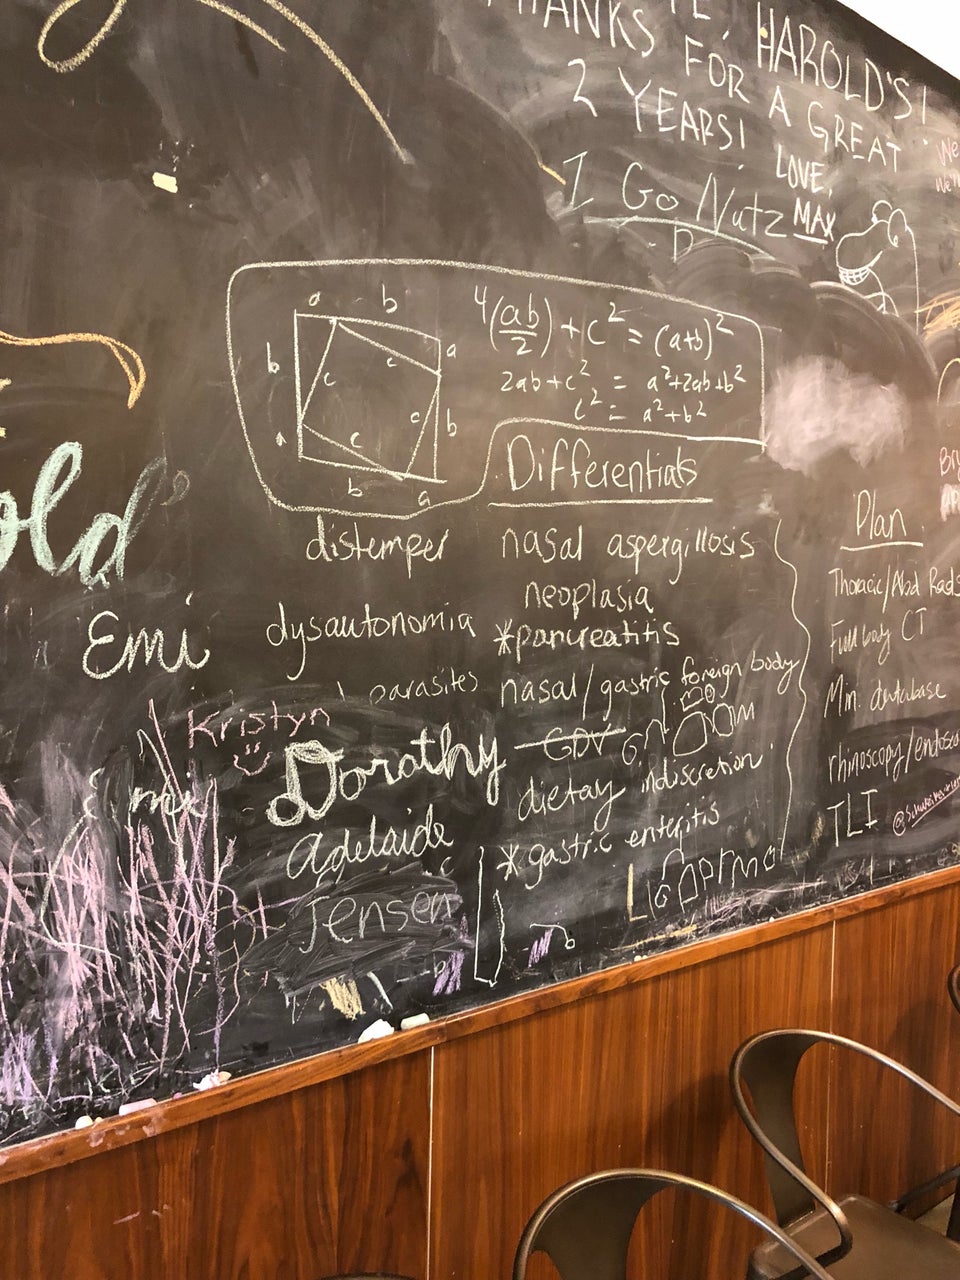 THANKS HAROLD'S!
FOR A GREAT
2 YEARS!
LOVE,
MAX
I Go Nutz
D
We
We'
a b
b c c a
a c c b
b a
4(ab/2) + c² = (a+b)²
2ab + c² = a²+2ab+b²
c² = a²+b²
Differentials
distemper
dysautonomia
parasites
nasal aspergillosis
neoplasia
*pancreatitis
nasal/gastric foreign body
GDV
dietay indiscretion
*gastric enteritis
Plan
Thoracic/Abd Rads
Full body CT
Min. database
rhinoscopy/endosco
TLI
Bry
old
Emi
Kristyn
Dorothy
Adelaide
Jensen
mi